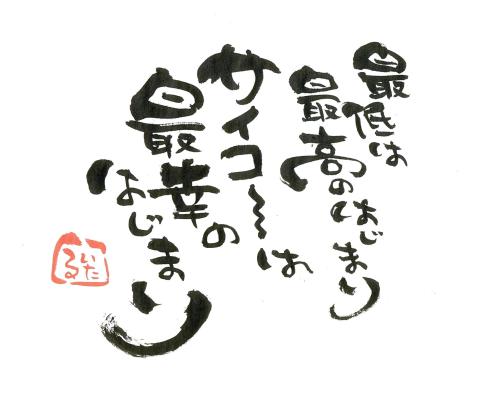 最低は
最高のはじまり
サイコ～は
最幸の
はじまり
いたる